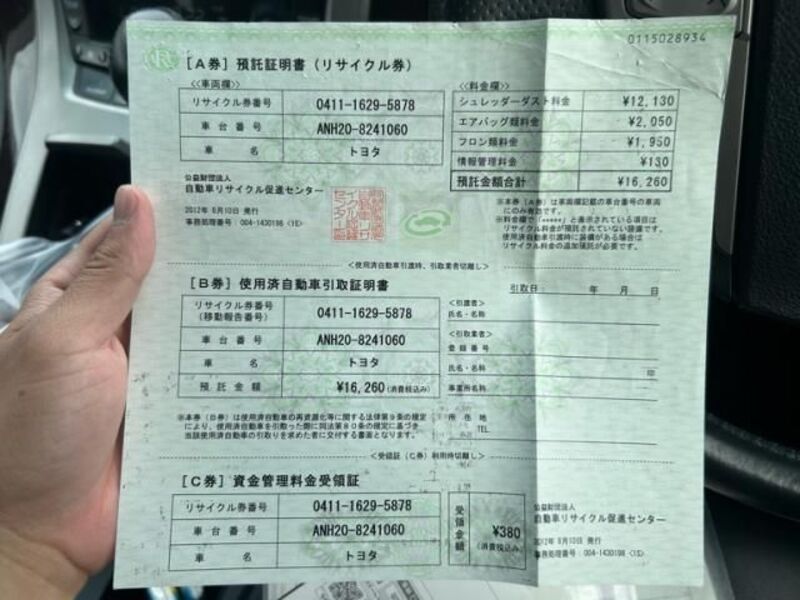 0115028934
[A券] 預託証明書 (リサイクル券)
<<車両欄>>
リサイクル券番号 0411-1629-5878
車台番号 ANH20-8241060
車名 トヨタ
<<料金欄>>
シュレッダーダスト料金 ¥12,130
エアバッグ類料金 ¥2,050
フロン類料金 ¥1,950
情報管理料金 ¥130
預託金額合計 ¥16,260
公益財団法人
自動車リサイクル促進センター
2012年 6月10日 発行
事務処理番号:004-1430198 <1E>
※本券(A券)は車両欄記載の車台番号の車両
にのみ有効です。
※料金欄で「*****」と表示されている項目は
リサイクル料金が預託されていない装備です。
使用済自動車引渡時に装備がある場合は
リサイクル料金の追加預託が必要です。
<使用済自動車引渡時、引取業者切離し>
[B券] 使用済自動車引取証明書
引取日: 年 月 日
リサイクル券番号
(移動報告番号) 0411-1629-5878
車台番号 ANH20-8241060
車名 トヨタ
預託金額 ¥16,260 (消費税込み)
<引渡者>
氏名・名称
<引取業者>
登録番号
氏名・名称 印
事業所名称
所在地
TEL
※本券(B券)は使用済自動車の再資源化等に関する法律第9条の規定
により、使用済自動車を引取った際に同法第80条の規定に基づき
当該使用済自動車の引取りを求めた者に交付する書面となります。
<受領証(C券)利用時切離し>
[C券] 資金管理料金受領証
リサイクル券番号 0411-1629-5878
車台番号 ANH20-8241060
車名 トヨタ
受領金額 ¥380
(消費税込み)
公益財団法人
自動車リサイクル促進センター
2012年 6月10日 発行
事務処理番号:004-1430198 <1S>